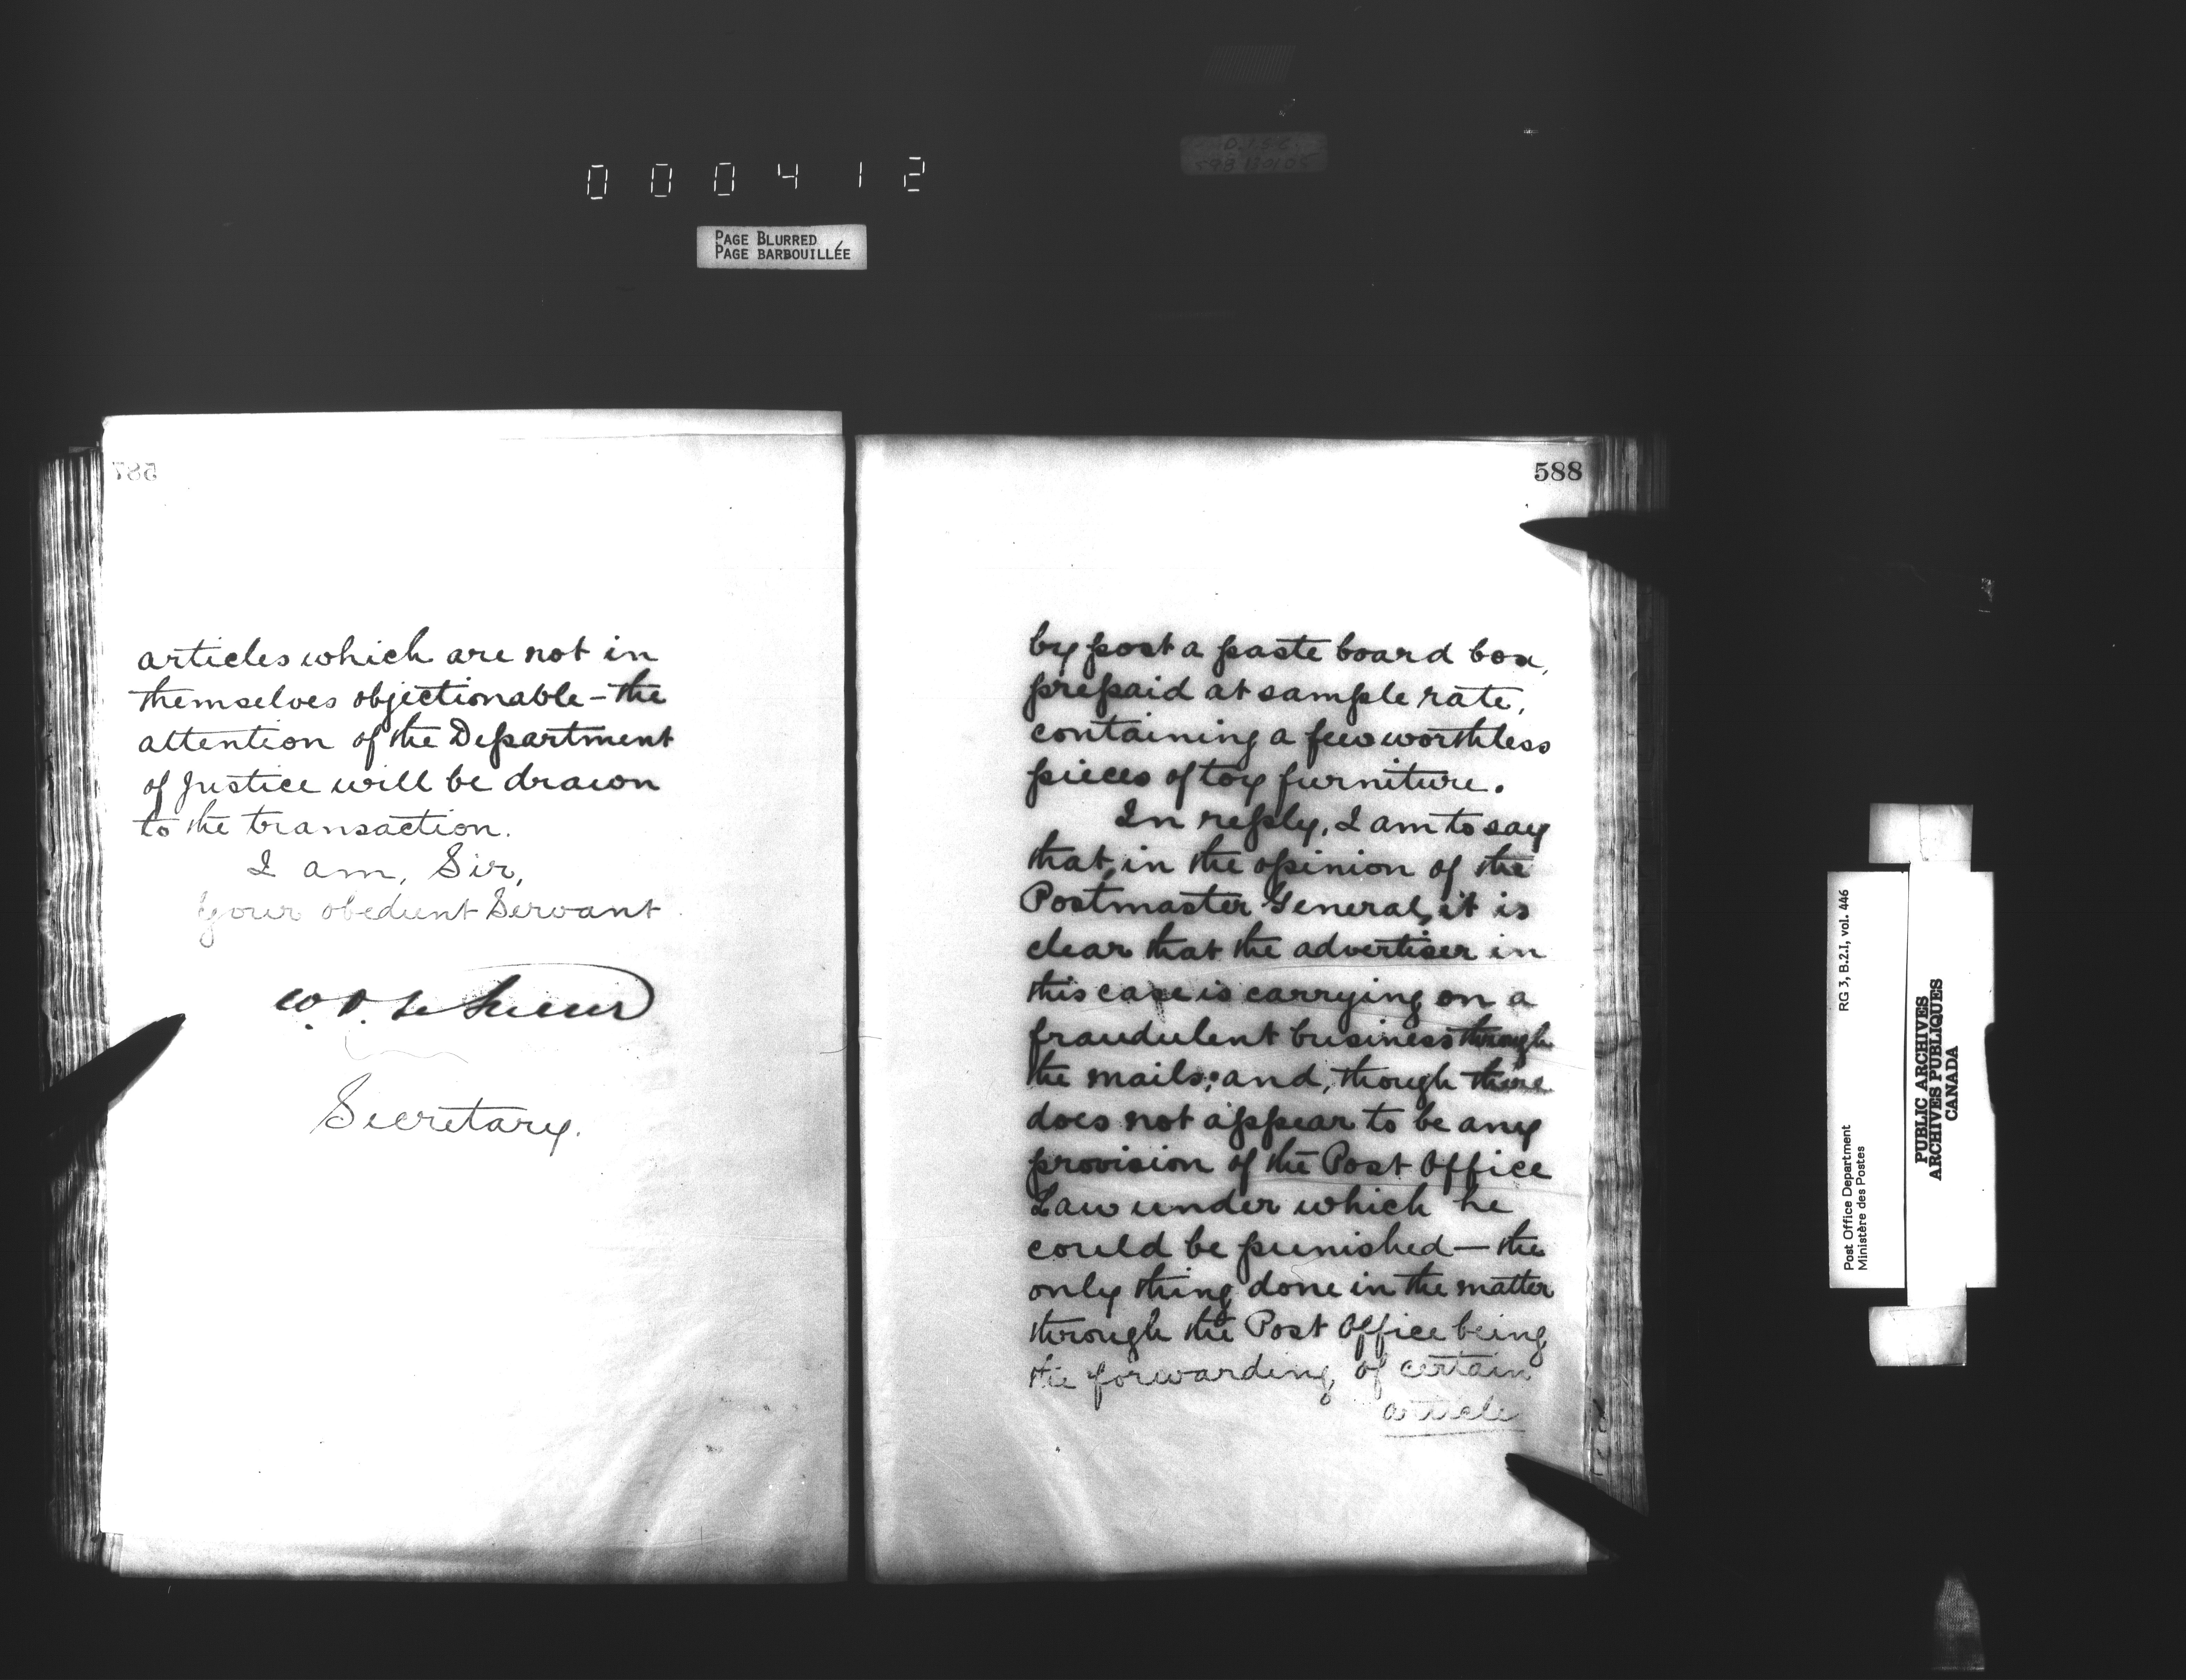 000412
PAGE BLURRED
PAGE BARBOUILLÉE
587
articles which are not in
themselves objectionable – the
attention of the Department
of Justice will be drawn
to the transaction.
I am, Sir,
Your obedient Servant
W. D. LeSueur
Secretary.
588
by post a paste board box,
prepaid at sample rate,
containing a few worthless
pieces of toy furniture.
In reply, I am to say
that, in the opinion of the
Postmaster General, it is
clear that the advertiser in
this case is carrying on a
fraudulent business through
the mails; and, though there
does not appear to be any
provision of the Post Office
Law under which he
could be punished — the
only thing done in the matter
through the Post Office being
the forwarding of certain
article
RG 3, B.2.I, vol. 446
Post Office Department
Ministère des Postes
PUBLIC ARCHIVES
ARCHIVES PUBLIQUES
CANADA